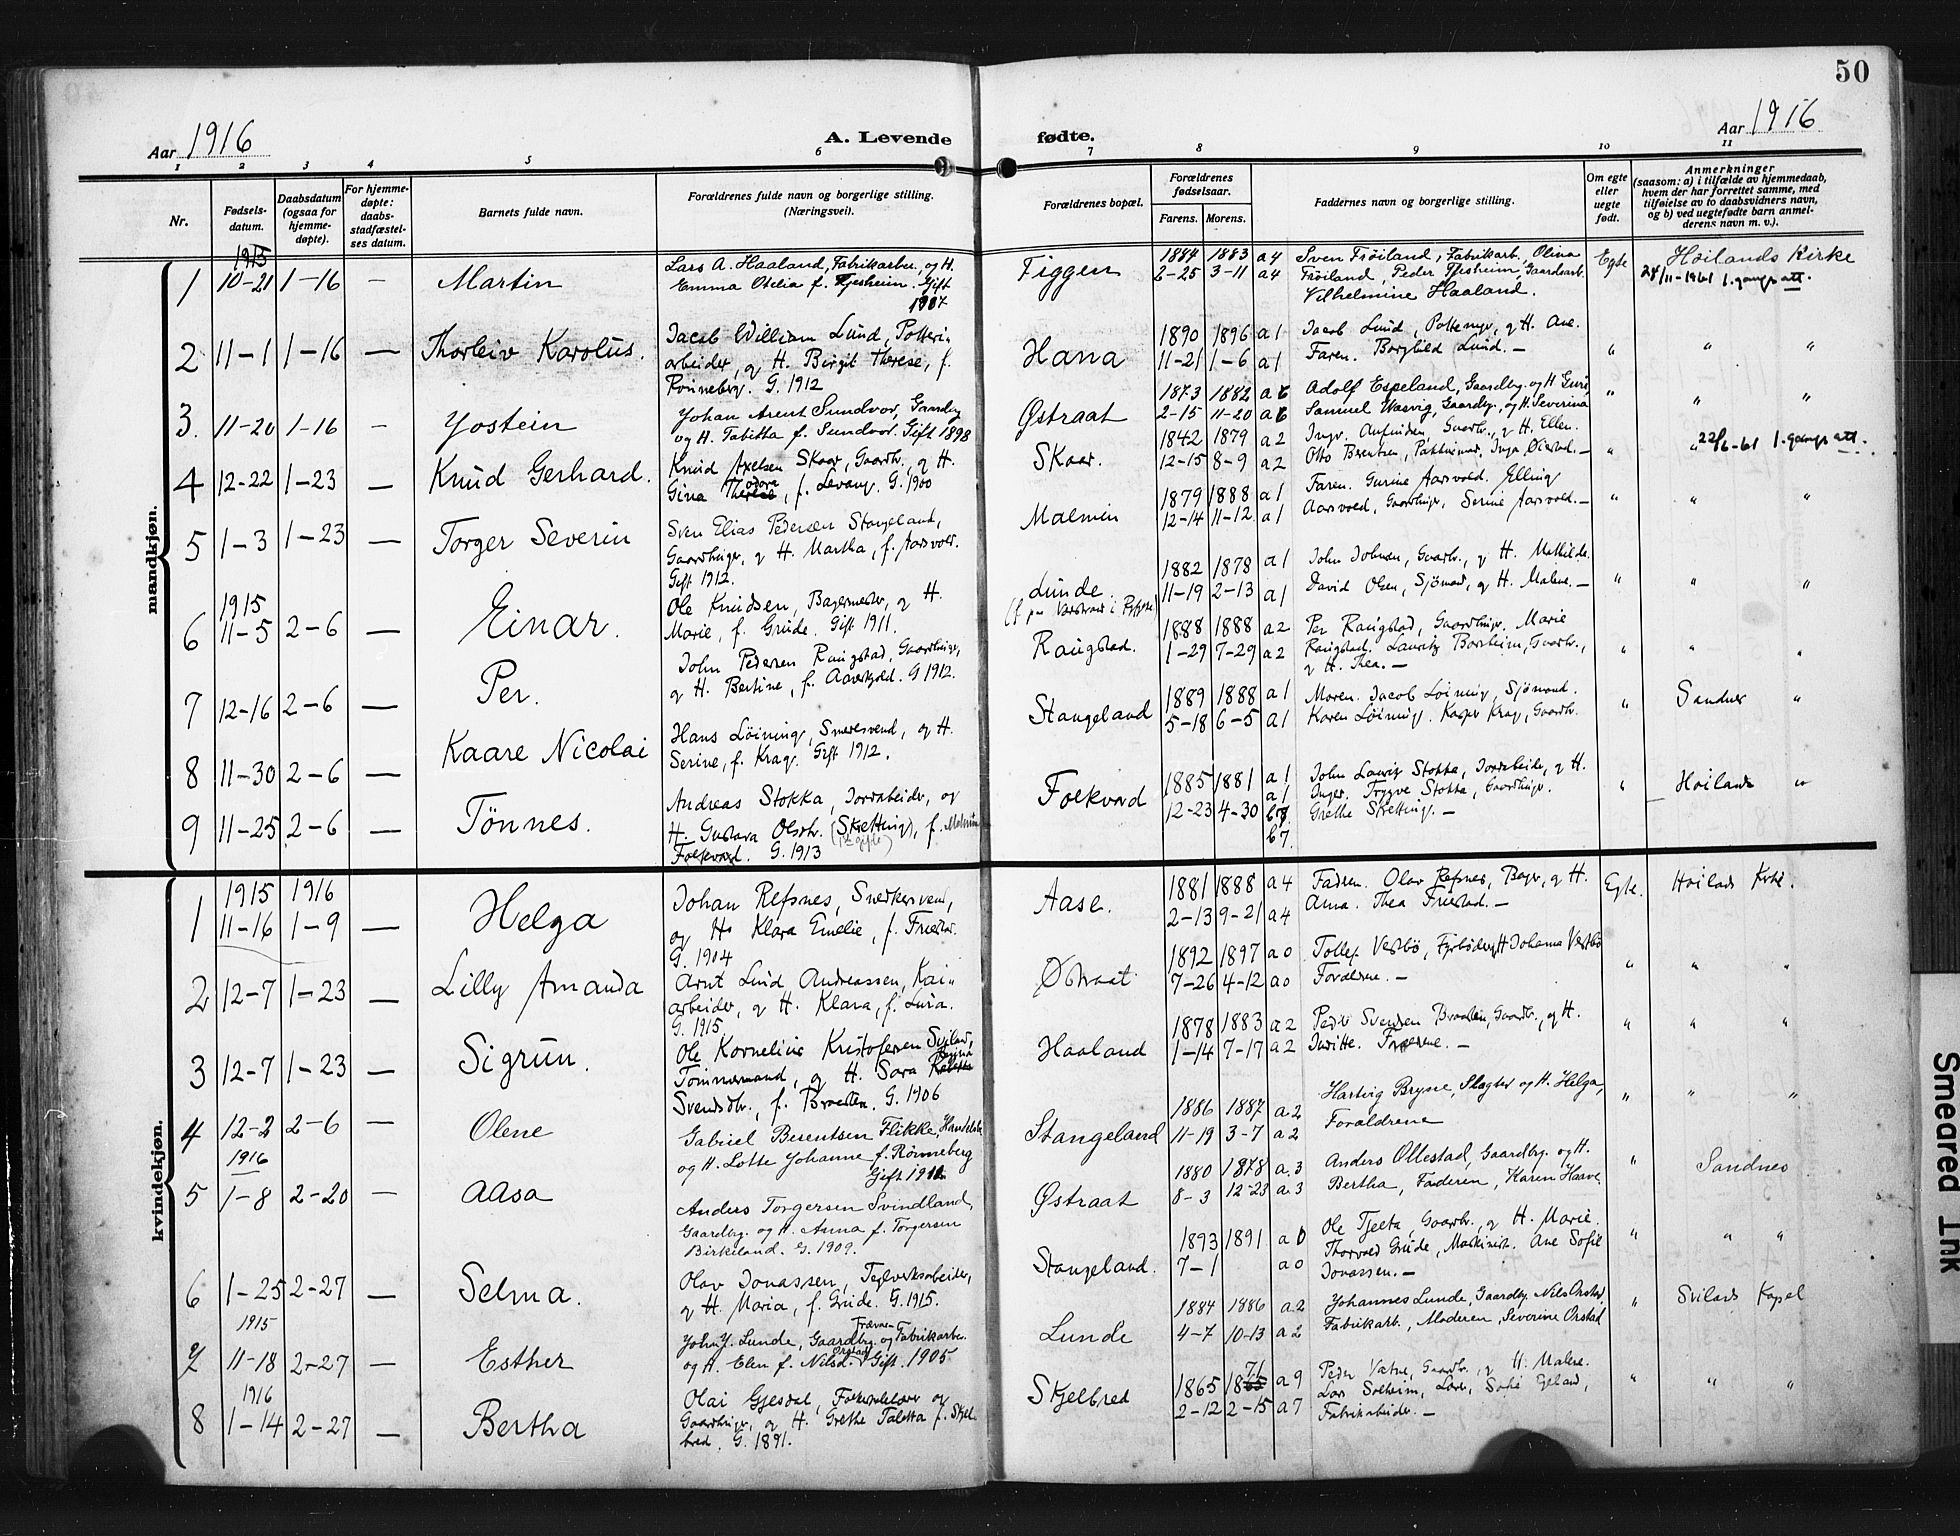 50
Aar 1916
A. Levende
fødte.
Aar 1916
1 2 3 4 5 6 7 8 9 10 11
Nr.
Fødsels-
datum.
Daabsdatum
(ogsaa for
hjemme-
døpte).
For hjemme-
døpte:
daabs-
stadfæstel-
ses datum.
Barnets fulde navn.
Forældrenes fulde navn og borgerlige stilling.
(Næringsvei).
Forældrenes bopæl.
Forældrenes
fødselsaar.
Farens. Morens.
Faddernes navn og borgerlige stilling.
Om egte
eller
uegte
født.
Anmerkninger
(saasom: a) i tilfælde av hjemmedaab,
hvem der har forrettet samme, med
tilføielse av to daabsvidners navn,
og b) ved uegtefødte barn anmel-
derens navn m. v.).
mandkjøn.
1915
1 10-21 1-16 — Martin
Lars A. Haaland, Fabrikarbei, og H.
Emma Otelia f. Tjesheim. Gift
1907
Figgen
1884 1883 a4
2-25 3-11 a4
Sven Frøiland, Fabrikarb. Olina
Frøiland, Peder Tjesheim, Gaardarb.
Vilhelmine Haaland.
Egte
Høilands Kirke
24/11-1961 1.gangs att.
2 11-1 1-16 — Thorleiv Karolus.
Jacob William Lund, Potteri-
arbeider, og H. Birgit Therese, f.
Rønneberg. G. 1912
Hana
1890 1896 a1
11-21 1-6 a1
Jacob Lund, Pottemgr, og H. Ane.
Faren. Borghild Lund. —
" " "
3. 11-20 1-16 — Jostein
Johan Arent Sundvor, Gaardbg
og H. Tabitta f. Sundvor. Gift 1898
Østraat
1873 1882 a6
2-15 11-20 a6
Adolf Espeland, Gaardbg. og H Guri,
Samuel Wasvig, Gaardbg., og H. Severina
" " "
4 12-22 1-23 — Knud Gerhard.
Knud Axelsen Skaar, Gaardbr, og H.
Gina Theodora, f. Levang. G. 1900
Skaar.
1842 1879 a2
12-15 8-9 a2
Ingv. Aufinsen Gaardbr., og H. Ellen.
" " 22/6-61 1.gangs att.
5 1-3 1-23 — Torger Severin
Sven Elias Pedersen Stangeland,
Gaardbruger, og H. Martha, f. Aarsvold.
Gift 1912.
Malmin
1879 1888 a1
12-14 11-12 a1
Faren. Gurine Aarsvold. Elling
Aarsvold, Gaardbruger, Serine Aarsvold. —
" " "
1915
6 11-5 2-6 — Einar.
Ole Knudsen, Bagermester, og H.
Marie, f. Grude. Gift 1911.
Lunde.
1882 1878 a1
11-19 2-13 a1
John Johnsen, Gaardbr, og H. Mathilde.
David Olsen, Sjömand, og H. Malene. —
" " "
7 12-16 2-6 — Per.
John Pedersen Raugstad, Gaardbruger,
og H. Bertine, f. Aareskjold. G. 1912.
Raugstad.
1888 1888 a2
1-29 7-29 a2
Per Raugstad, Gaardbruger, Marie
Raugstad. Lauritz Borsheim, Gaardbr.,
og H. Thea. —
" " "
8 11-30 2-6 — Kaare Nicolai
Hans Löining, Smedsvend, og H.
Serine, f. Krag. Gift 1912.
Stangeland
1889 1888 a1
5-18 6-5 a1
Moren. Jacob Löining, Sjömand.
Karen Löining. Kasper Krag, Gaardbr.
" Sandnes "
9 11-25 2-6 — Tönnes.
Andreas Stokka, Jordarbeider, og
H. Gustava Olsdtr. (Skretting), f. Malmin
Folkvord. G. 1913
Folkvord
1885 1881 a1
12-23 4-30 a1
b7.
John Lauritz Stokka, Jordarbeider, og H.
Inger. Trygve Stokka, Gaardbruger.
Grethe Skretting. —
" Høilands "
kvindekjøn.
1915 1916
1 11-16 1-9 — Helga
Johan Refsnes, Snedkersvend,
og H. Klara Emelie, f. Friestad.
G. 1904
Aase.
1881 1888 a4
2-13 9-21 a4
Fadren. Olav Refsnes, Bager, og H.
Anna. Thea Friestad. —
Egte. Høilads Kirke.
2 12-7 1-23 — Lilly Amanda
Arnt Lund Andreassen, Kai-
arbeider, og H. Klara, f. Lura.
G. 1915.
Østraat
1892 1897 a0
7-26 4-12 a0
Tollef Vestbö, Fyrböder, og H Johanna Vestbö
Forældrene. —
" " "
3 12-7 1-23 — Sigrun.
Ole Kornelius Kristofersen Sviland,
Tömmermand, og H. Sara Regina
Svendsdtr., f. Braasten. G. 1906
Haaland
1878 1883 a2
1-14 7-17 a2
Peder Svendsen Braasten, Gaardbr., og H.
Juditte. Forældrene. —
" " "
4 12-2 2-6 — Olene
Gabriel Berentsen Flikke, Handelsb
og H. Lotte Johanne f. Rönneberg
Gift 1911
Stangeland
1886 1887 a2
11-19 3-7 a2
Hartvig Bryne, Slagter og H. Helga,
Forældrene
" " "
1916
5 1-8 2-20 — Aasa
Anders Torgersen Svindland,
Gaardbg. og H. Anna f. Torgersen
Birkeland. G. 1909.
Østraat
1880 1878 a.3
8-3 12-23 a.3
Anders Ollestad, Gaardbg. og H.
Bertha, Faderen, Karen Haave.
" Sandnes
6 1-25 2-27 — Selma.
Olav Jonassen, Teglverksarbeider,
og H. Maria, f. Grude. G. 1915.
Stangeland.
1893 1891 a0
7-1 a0
Ole Tjelta, Gaardbr., og H. Marie.
Thorvald Grude, Maskinist. Ane Sofie
Jonassen. —
" " "
1915
7 11-18 2-27 — Esther
John J. Lunde, Gaardbg. og Trævare Fabrikarbei.
og H. Elen f. Nilsd. Orstad Gift. 1905
Lunde
1884 1886 a.2
4-7 10-13 a2
Johannes Lunde, Gaardbg. Nils Orsted,
Fabrikarb., Moderen, Severine Orstad
" Svilands Kapel
1916
8 1-14 2-27 — Bertha
Olai Gjesdal, Folkeskolelærer og
Gaardbruger, og H. Grethe Taletta f. Skjel-
bred. G. 1891.
Skjelbred
1865 1871 a9
2-12 2-15 a7
Peder Vatne, Gaardbr., og H. Malene.
Lars Solheim, Lærer, Sofie Egeland,
Fabrikarbeider. —
" " "
Smeared Ink